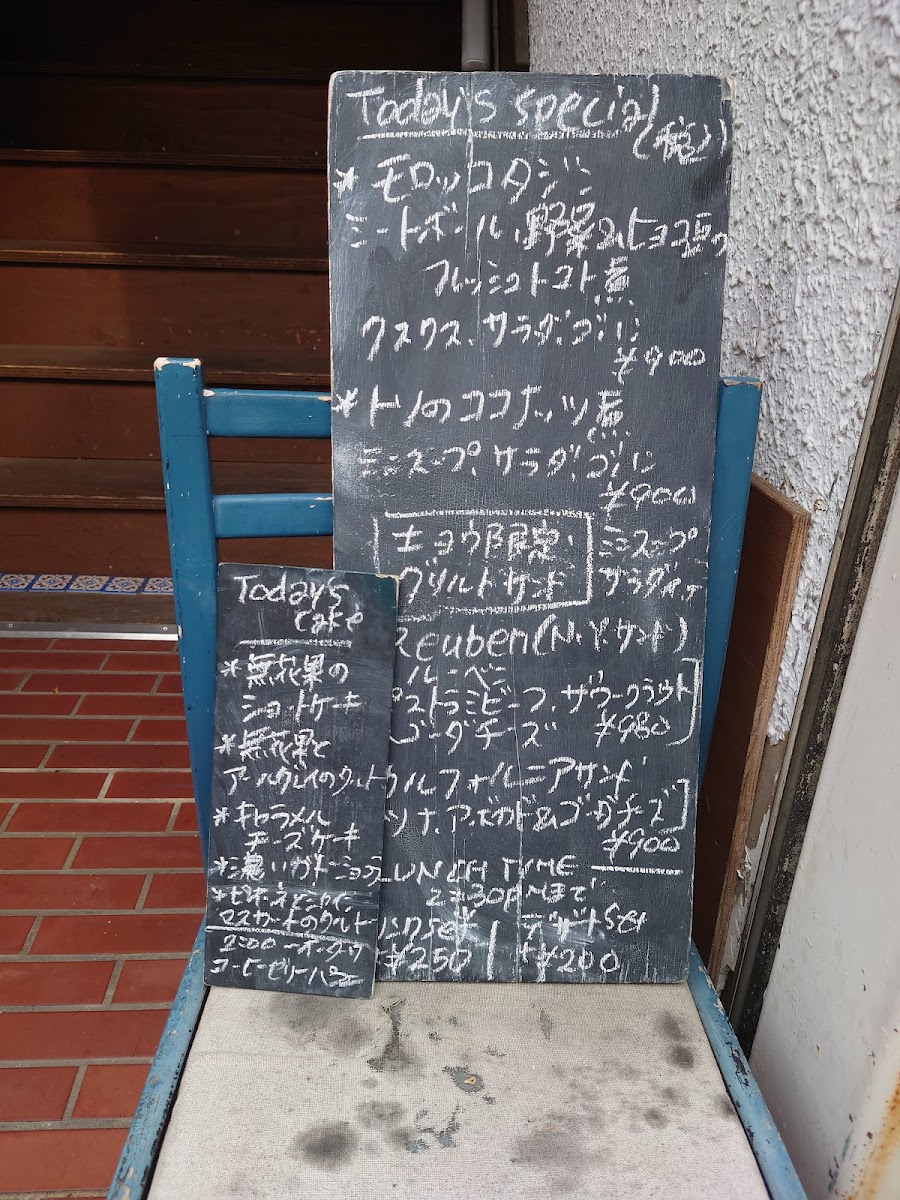 Today's special
(税)
* モロッコタジン
ミートボール、野菜&ヒヨコ豆の
フレッシュトマト煮
クスクス、サラダ、ゴハン
¥900
* トリのココナッツ煮
ミニスープ、サラダ、ゴハン
¥900
キョウ限定
グリルドサンド
ミニスープ
サラダ付
Reuben (N.Y.サンド)
ルーベン
パストラミビーフ、ザワークラウト
ゴーダチーズ ¥980
カリフォルニアサンド
ツナ、アボカド&ゴーダチーズ
¥900
LUNCH TIME
2:30PMまで
Drink set
¥250
デザートSet
+¥200
Today's
cake
* 無花果の
ショートケーキ
* 無花果と
アールグレイのタルト
* キャラメル
チーズケーキ
* 濃いガトーショコラ
* ピオーネとシャイン
マスカットのタルト
2:00〜オーダー
コーヒーゼリーパフェ